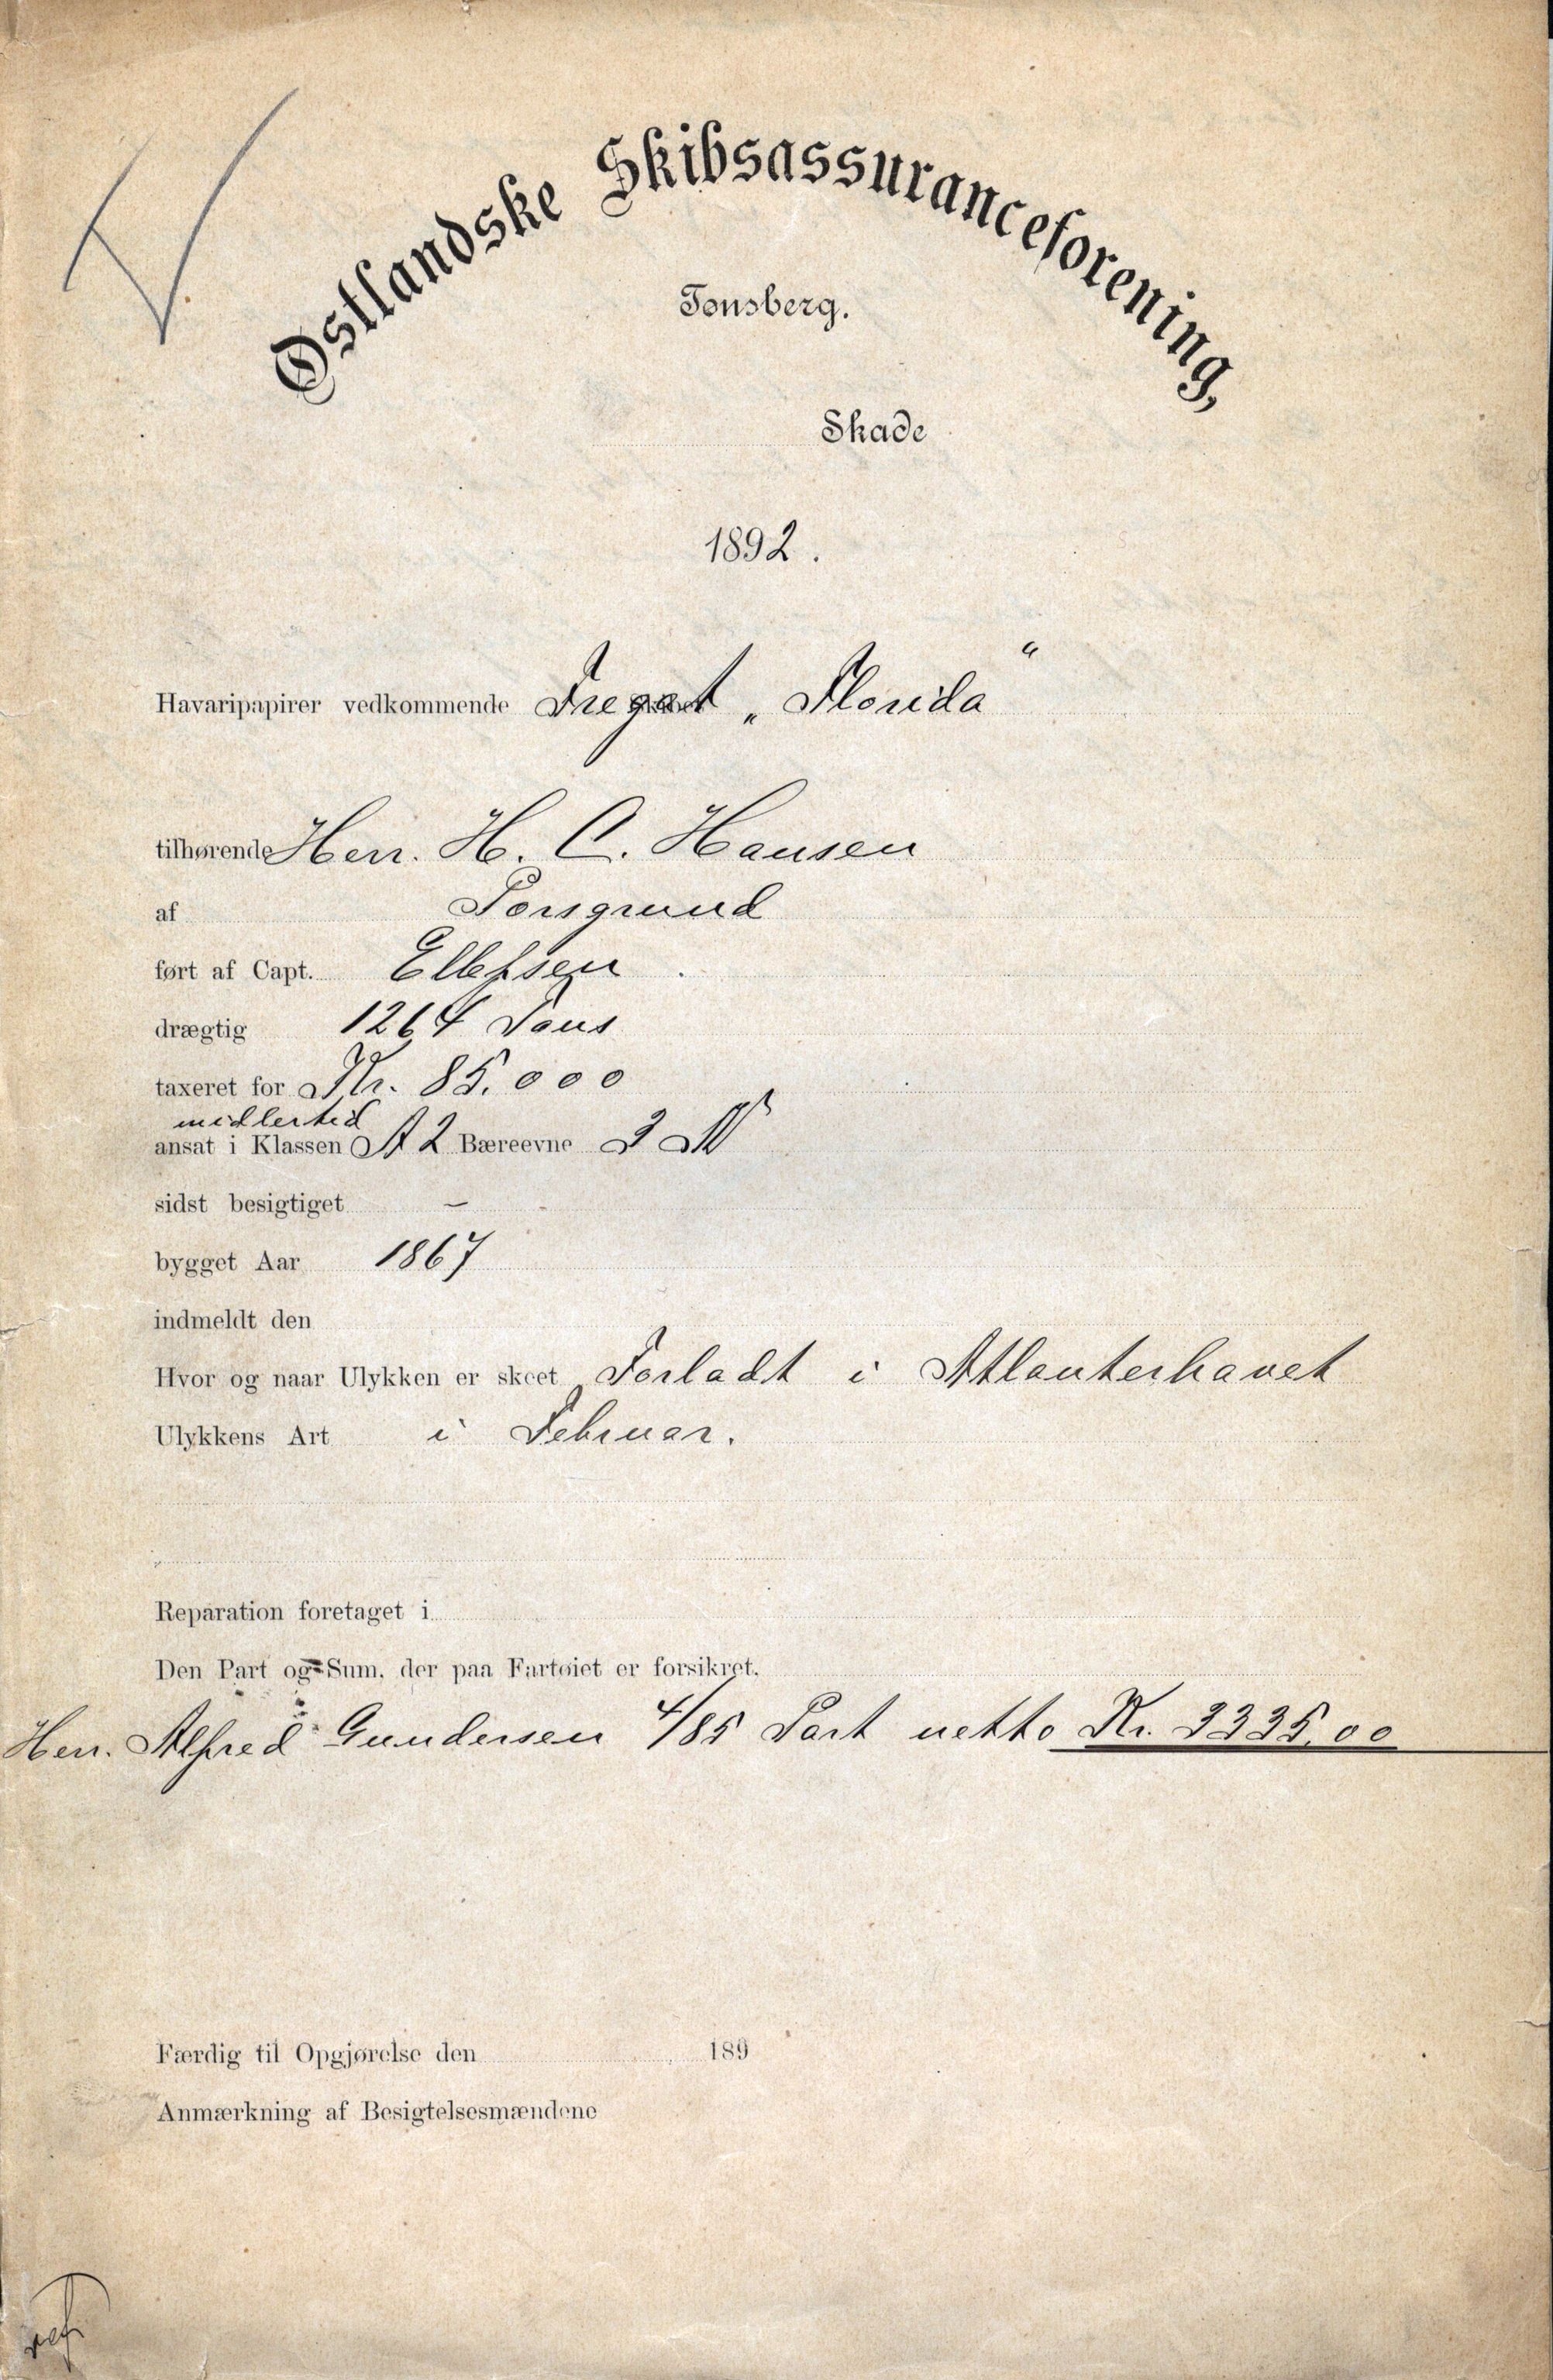 Østlandske Skibsassuranceforening,
Tønsberg.
Skade
1892.
Havaripapirer vedkommende Fregat „Florida"
tilhørende Herr. H. C. Hansen
af Porsgrund
ført af Capt. Ellefsen.
drægtig 1264 Tons
taxeret for Kr. 85.000
midlertid
ansat i Klassen A 2 Bæreevne
sidst besigtiget –
bygget Aar 1867
indmeldt den
Hvor og naar Ulykken er skeet Forladt i Atlanterhavet
Ulykkens Art i Februar.
Reparation foretaget i
Den Part og Sum, der paa Fartøiet er forsikret.
Herr. Alfred Gundersen 4/85 Part netto Kr. 3335.00
Færdig til Opgjørelse den 189
Anmærkning af Besigtelsesmændene